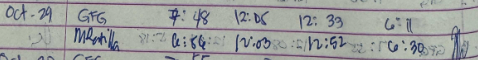 Oct. 29 GFG 7:48 12:05 12:33 6:11
6:56 12:03 12:52 6:30